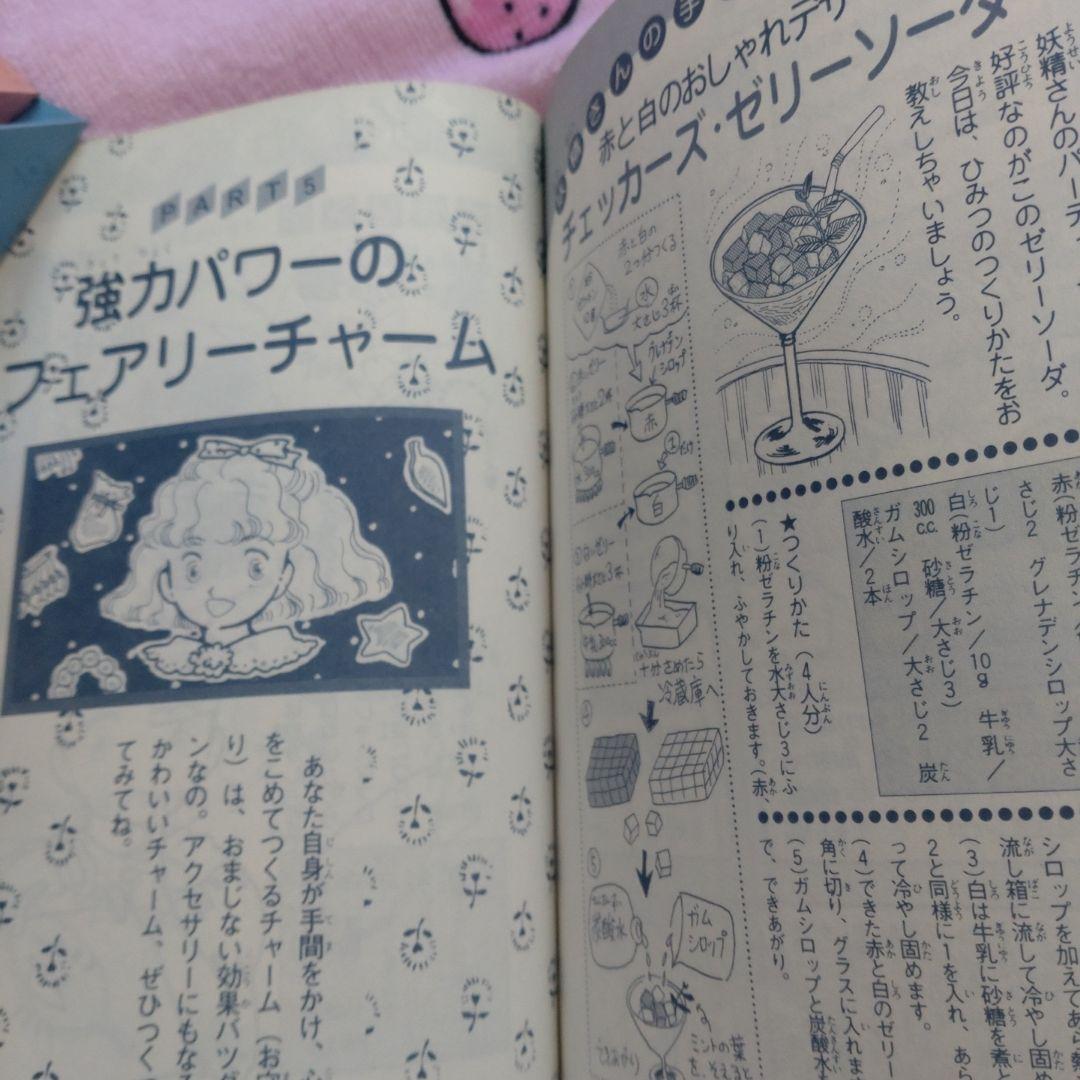 PART 5
強力パワーの
フェアリーチャーム
あなた自身が手間をかけ、
をこめてつくるチャーム（お守
り）は、おまじない効果バツグ
ンなの。アクセサリーにもなる
かわいいチャーム、ぜひつく
てみてね。
さんの手
赤と白のおしゃれデザ
チェッカーズ・ゼリーソーダ
妖精さんのパーティー
好評なのがこのゼリーソーダ。
今日は、ひみつのつくりかたをお
教えしちゃいましょう。
赤（粉ゼラチン
さじ2　グレナデンシロップ大さ
じ1）
白（粉ゼラチン／10g　牛乳／
300c.c.　砂糖／大さじ3）
ガムシロップ／大さじ2　炭
酸水／2本
★つくりかた（4人分）
（1）粉ゼラチンを水大さじ3にふ
り入れ、ふやかしておきます。（赤、
シロップを加えてあら熱
流し箱に流して冷やし固め
（3）白は牛乳に砂糖を煮と
2と同様に1を入れ、あら
って冷やし固めます。
（4）できた赤と白のゼリー
角に切り、グラスに入れま
（5）ガムシロップと炭酸水
で、できあがり。
赤と白の
2つ分つくる
水
大さじ3杯
グレナデン
シロップ
赤
①だけ
白
十分さめたら
冷蔵庫へ
④
⑤
炭酸水
ガム
シロップ
ミントの葉
を、そえると
できあがり